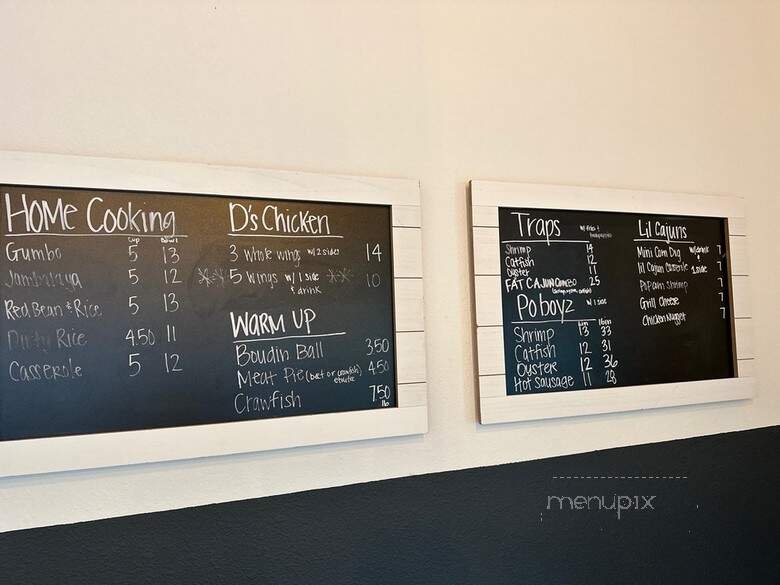 Home Cooking
Cup Bowl
Gumbo 5 13
Jambalaya 5 12
Red Bean & Rice 5 13
Dirty Rice 450 11
Casserole 5 12
D's Chicken
3 whole wings w/ 2 sides 14
** 5 wings w/ 1 side & drink ** 10
WARM UP
Boudin Ball 350
Meat Pie (beef or crawfish) 450
Crawfish 750
lb
Traps
Shrimp 14
Catfish 12
Oyster 11
FAT CAJUN COMBO 25
Poboyz w/ 1 side
Shrimp 13 33
Catfish 12 31
Oyster 12 36
Hot Sausage 11 28
Lil Cajuns
Mini Corn Dog 7
lil Cajun Casserole 1 side 7
Popcorn Shrimp 7
Grill Cheese 7
Chicken Nugget 7
menupix